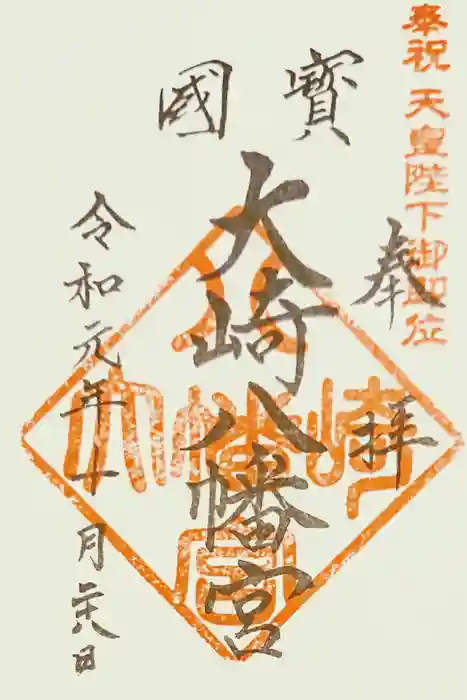 奉祝 天皇陛下御即位
奉拝
寶國
大崎八幡宮
令和元年十月二十八日
大崎八幡宮